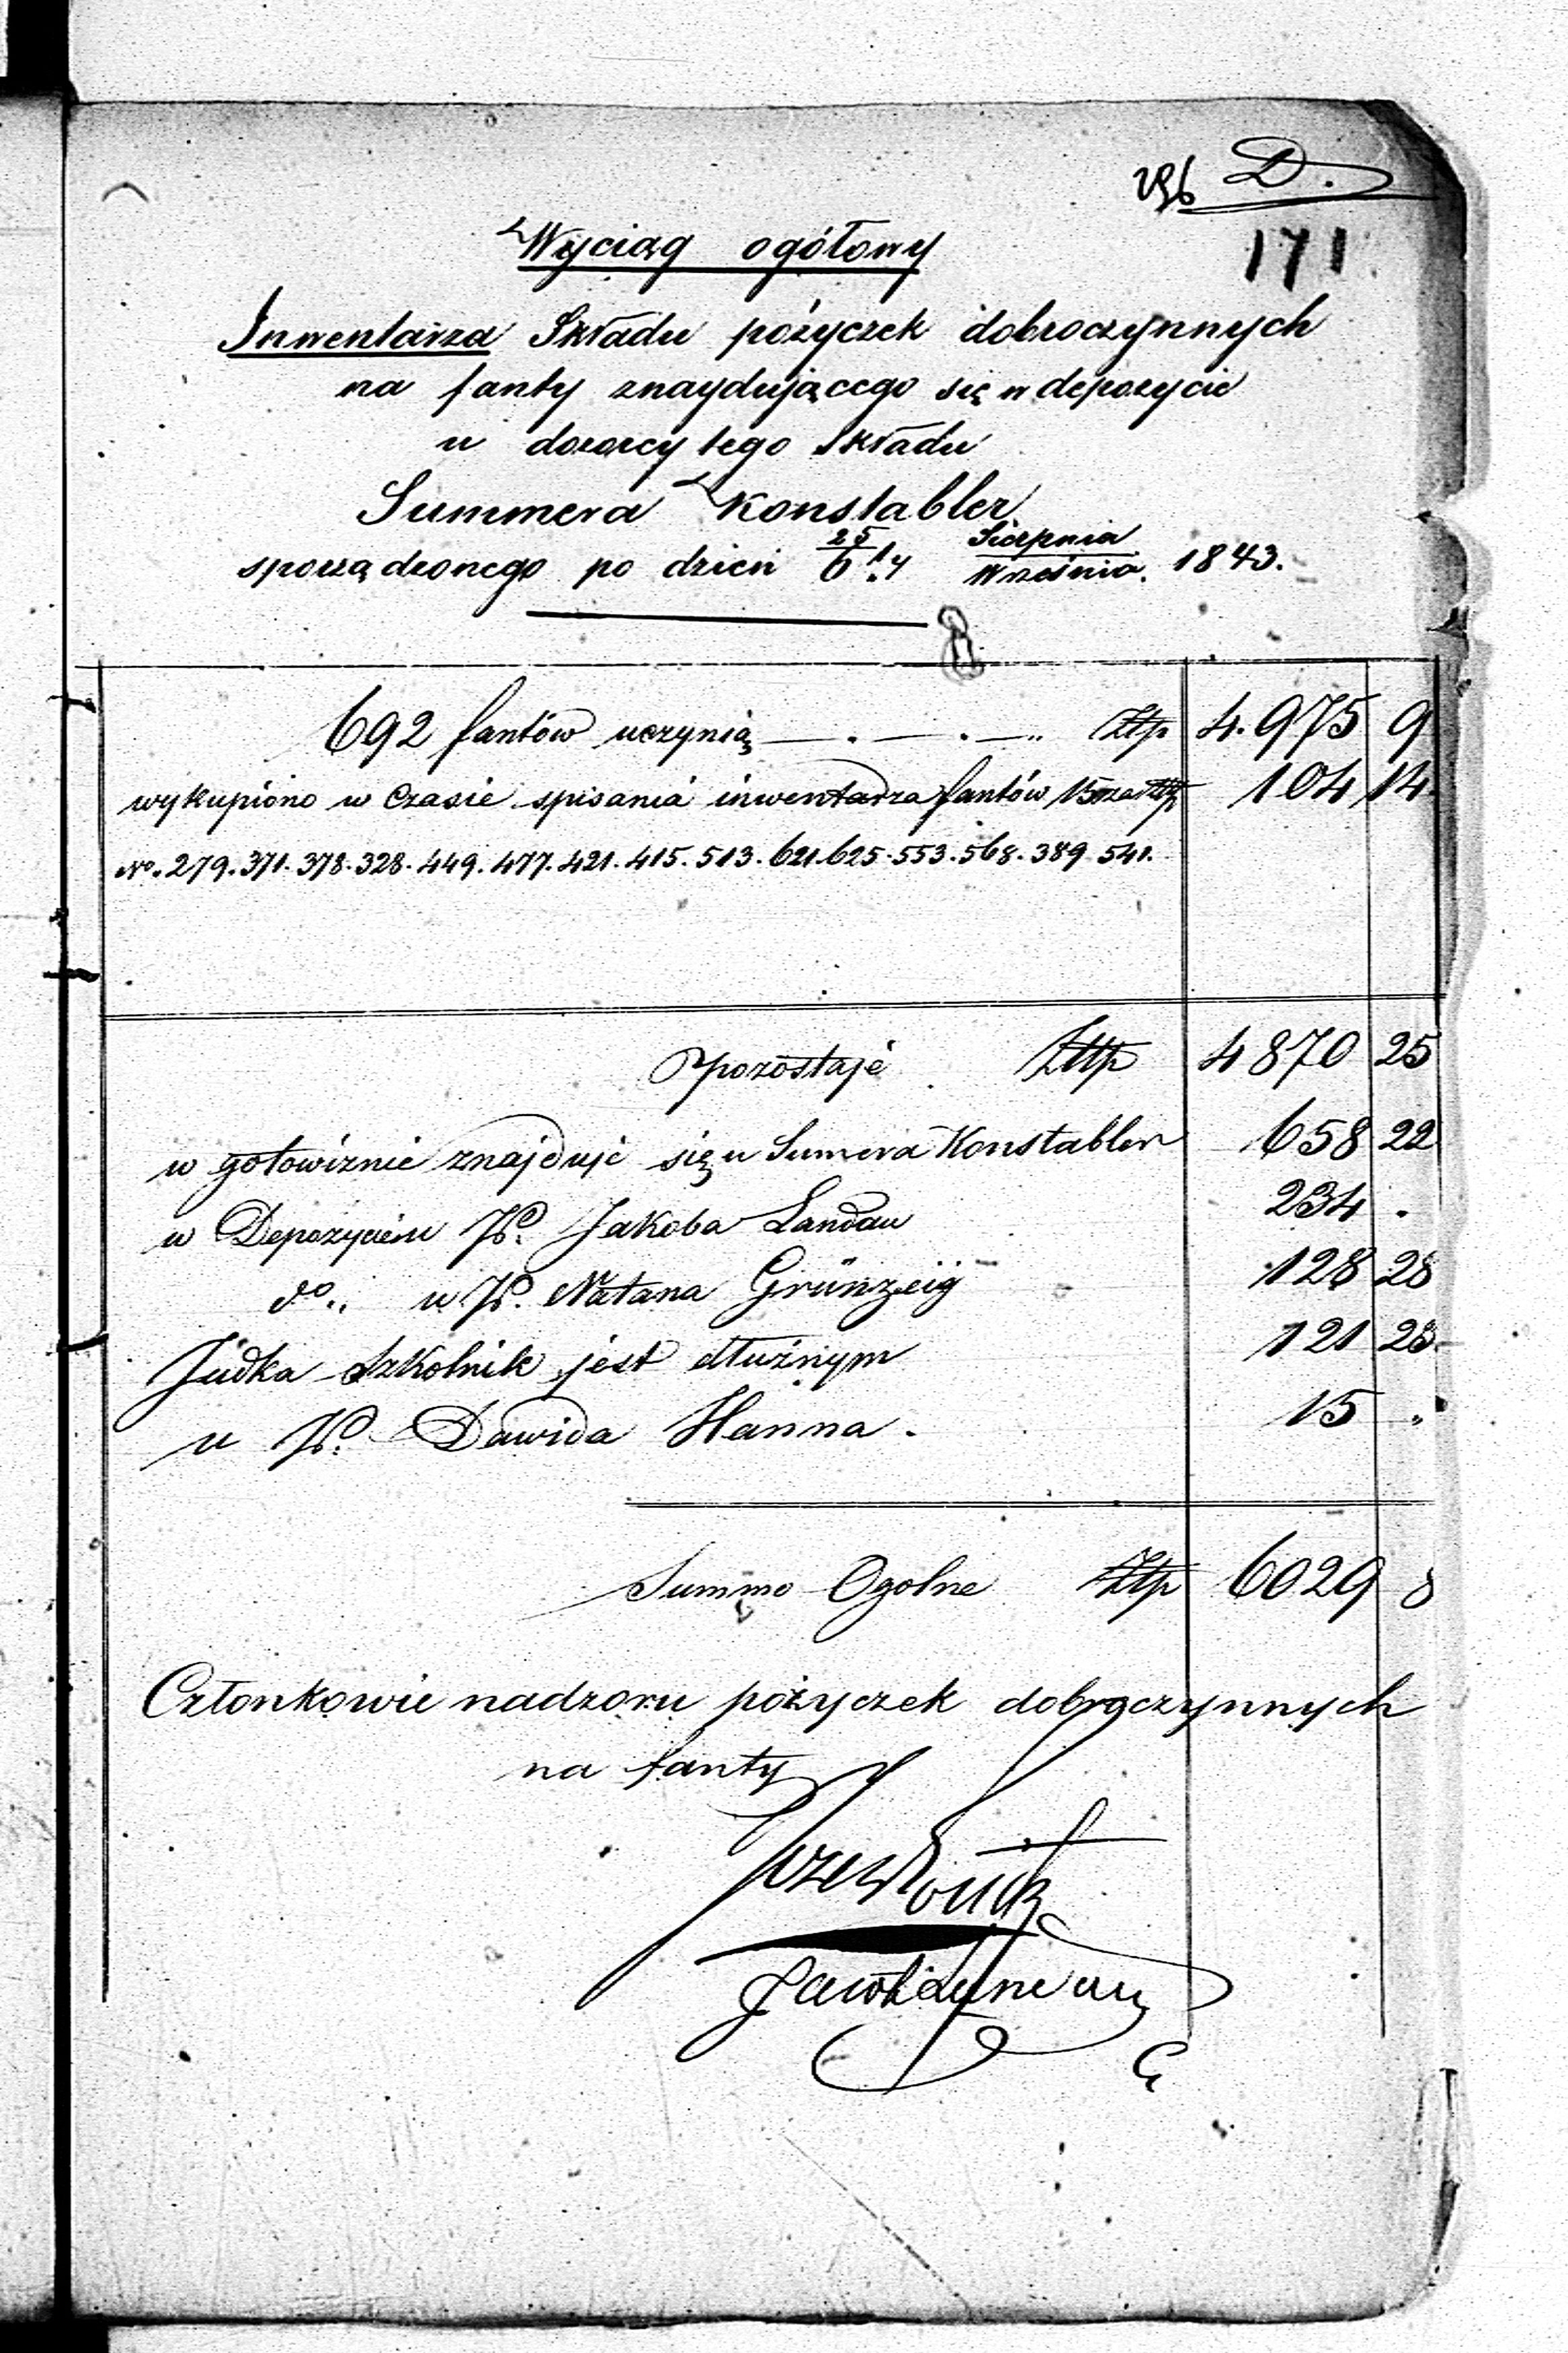 296 D.
171
Wyciąg ogółowy
Inwentarza Składu pożyczek dobroczynnych
na fanty znaydującego się w depozycie
u dozorcy tego Składu
Summera Konstabler
sporządzonego po dzień 25/6 Sierpnia/Września 1843.
692 fantów uczynią Złp 4.975 9
wykupiono w Czasie spisania inwentarza fantów 15 za Złp 104 14.
No. 279. 371. 378. 328. 449. 477. 421. 415. 513. 621. 625. 553. 568. 389. 541.
pozostaje Złp 4870 25
w gotowiznie znajduje się u Sumera Konstabler 658 22
w Depozycie u P. Jakoba Landau 234 .
do.. u P. Natana Grünzeig 128 28
Judka Szkolnik jest dłużnym 121 23
u P. Dawida Hanna. 15 "
Summo Ogolne Złp 6029 8
Członkowie nadzoru pożyczek dobroczynnych
na fanty